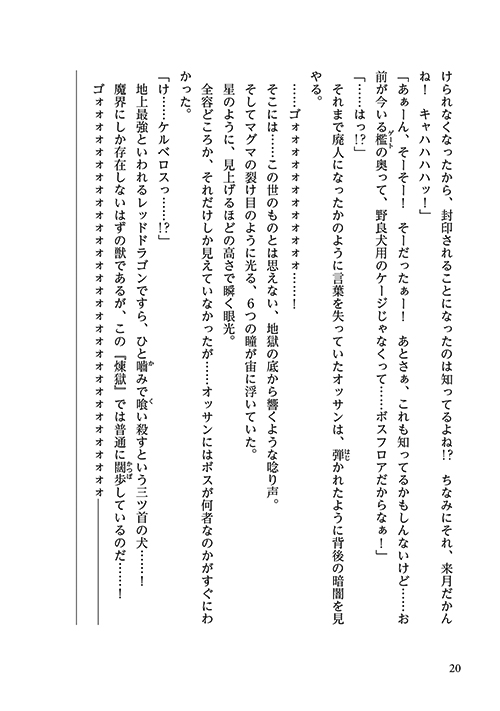 けられなくなったから、封印されることになったのは知ってるよね!?　ちなみにそれ、来月だかん
ね！　キャハハハハッ！」
「あぁーん、そーそー！　そーだったぁー！　あとさぁ、これも知ってるかもしんないけど……お
前が今いる檻の奥って、野良犬用のケージじゃなくって……ボスフロアだからなぁ！」
「……はっ!?」
それまで廃人になったかのように言葉を失っていたオッサンは、弾かれたように背後の暗闇を見
やる。
……ゴォォォォォォォォォォ……！
そこには……この世のものとは思えない、地獄の底から響くような唸り声。
そしてマグマの裂け目のように光る、６つの瞳が宙に浮いていた。
星のように、見上げるほどの高さで瞬く眼光。
全容どころか、それだけしか見えていなかったが……オッサンにはボスが何者なのかがすぐにわ
かった。
「け……ケルベロスっ……!?」
地上最強といわれるレッドドラゴンですら、ひと嚙みで喰い殺すという三ツ首の犬……！
魔界にしか存在しないはずの獣であるが、この『煉獄』では普通に闊歩しているのだ……！
ゴォォォォォォォォォォォォォォォォォォォォォォォ――――――
20